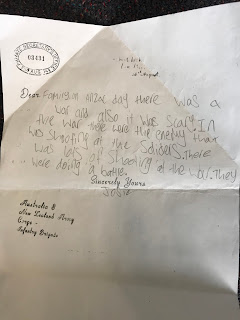 Dear Family on anzac day there was a
war and also it was scary In
the war there were the enemy that
was shooting at the Soliders. There
was lots of shooting at the war. They
were doing a battle.
Sincerely Yours
Australia &
New Zealand Army
Corps -
Infantry Brigade